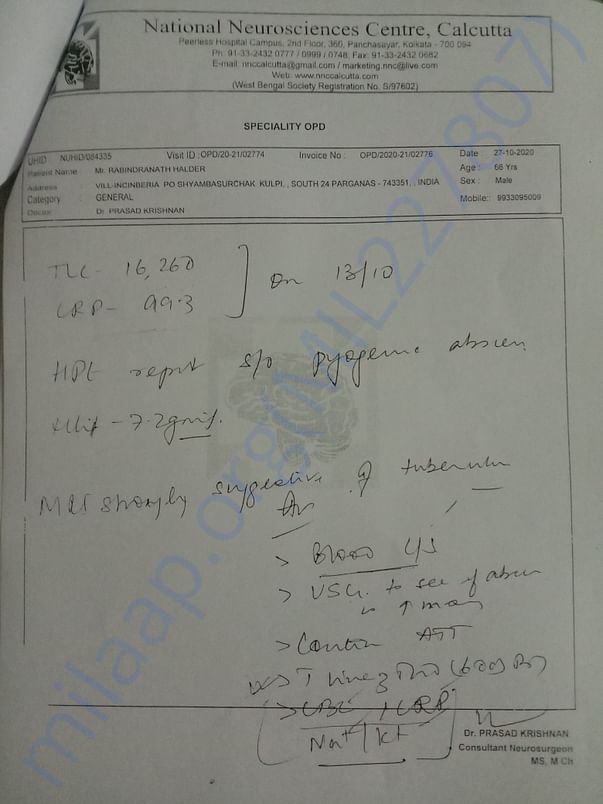 National Neurosciences Centre, Calcutta
Peerless Hospital Campus, 2nd Floor, 360, Panchasayar, Kolkata - 700 094
Ph: 91-33-2432 0777 / 0999 / 0748, Fax: 91-33-2432 0682
E-mail: nnccalcutta@gmail.com / marketing.nnc@live.com
Web: www.nnccalcutta.com
(West Bengal Society Registration No. S/97602)
SPECIALITY OPD
UHID NUHID/084335 Visit ID :OPD/2020-21/02774 Invoice No : OPD/2020-21/02776 Date : 27-10-2020
Patient Name : Mr. RABINDRANATH HALDER Age : 66 Yrs
Address : VILL-INCINBERIA PO SHYAMBASURCHAK KULPI, , SOUTH 24 PARGANAS - 743351, , INDIA Sex : Male
Category : GENERAL Mobile:: 9933095009
Doctor : Dr. PRASAD KRISHNAN
TLC - 16,260
CRP - 99.3
] on 13/10
HPE report s/o pyogenic abscess
- 7.2
MRI strongly suggestive of
> Blood C/S
> USG. to see if
>
> CBC / CRP
Na+ / K+
Dr. PRASAD KRISHNAN
Consultant Neurosurgeon
MS, M Ch
milaap.org(MIL227807)